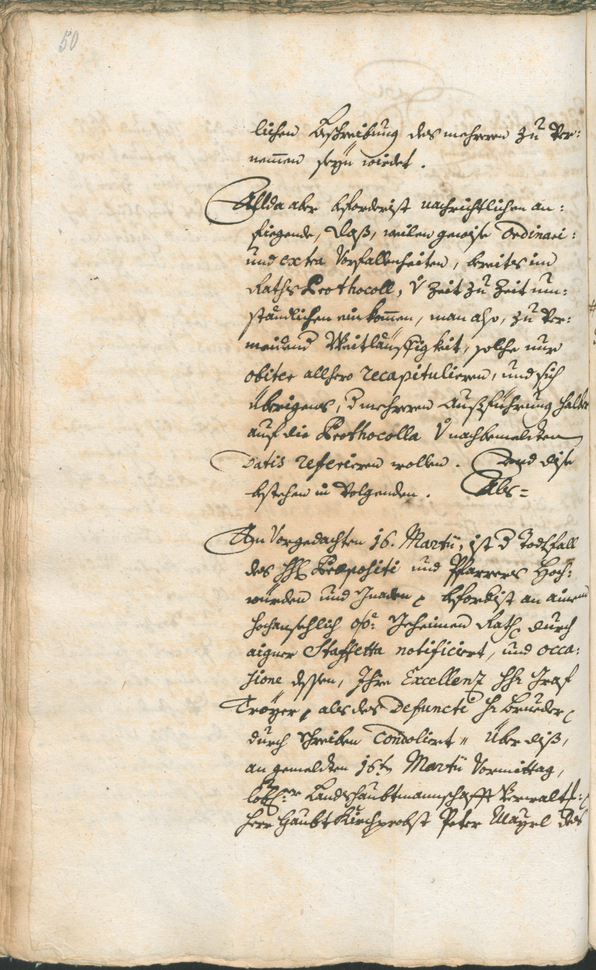 50
lichen Beschreibung des mehreren zu Ver:
nemmen seyn wirdet.
Allda aber beforderist nachrichtlichen an:
fiegende, daß, weilen gewise Ordinari:
und extra Vorfallenheiten, bereits im
Raths Prothocoll, v Zeit zu Zeit um:
ständlichen einkommen, man also, zu Ver:
meidung Weitläuffigkeit, solche nur
obiter allhero recapitulieren, und sich
übrigens, d mehreren Ausführung halber
auf die Prothocolla v nachbemelten
Datis referieren wollen. Und dise
bestehen in Volgenden. Als=
Am Vorgedachten 16. Martii, ist d Todtfall
des HH. Praepositi und Pfarrers Hoch:
würden und Gnaden beforderist an ainen
Hochansehlich Geheimen Rath durch
aigner Staffetta notificiert, und occa:
sione dessen, Ihre Excellenz HH. Graf
Troyer, als des Defuncti H. Brueder
durch Schreiben Condoliert. Über diß,
an gemelten 16ten Martii Vormittag,
löbl. Landshaubtmannschafft Verwalter
Herr Haubt Kirchprobst Peter Mayrl des